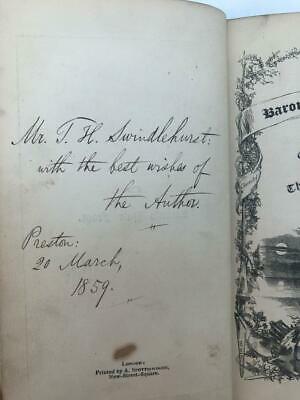 Mr. T. H. Swindlehurst:
with the best wishes of
the Author.
Preston:
20 March,
1859.
London:
Printed by A. Spottiswoode,
New-Street-Square.
Baron
Th